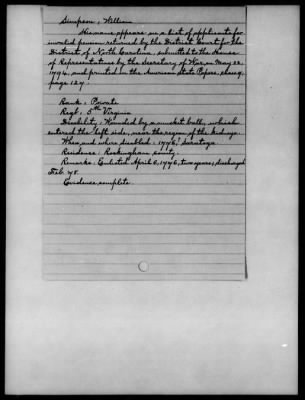 Simpson, William
His name appears in a list of applicants for
invalid pension returned by the District Court for the
District of North Carolina, submitted to the House
of Representatives by the Secretary of War, on May 22
1794, and printed in the American State Papers, class 9,
page 127.
Rank: Private
Regt. 5th Virginia
Disability: Wounded by a musket ball, which
entered the left side, near the region of the kidneys.
When and where disabled: 1776, Saratoga
Residence: Rockingham county
Remarks: Enlisted April 6, 1776, two years; discharged
Feb. 78.
Evidence complete.